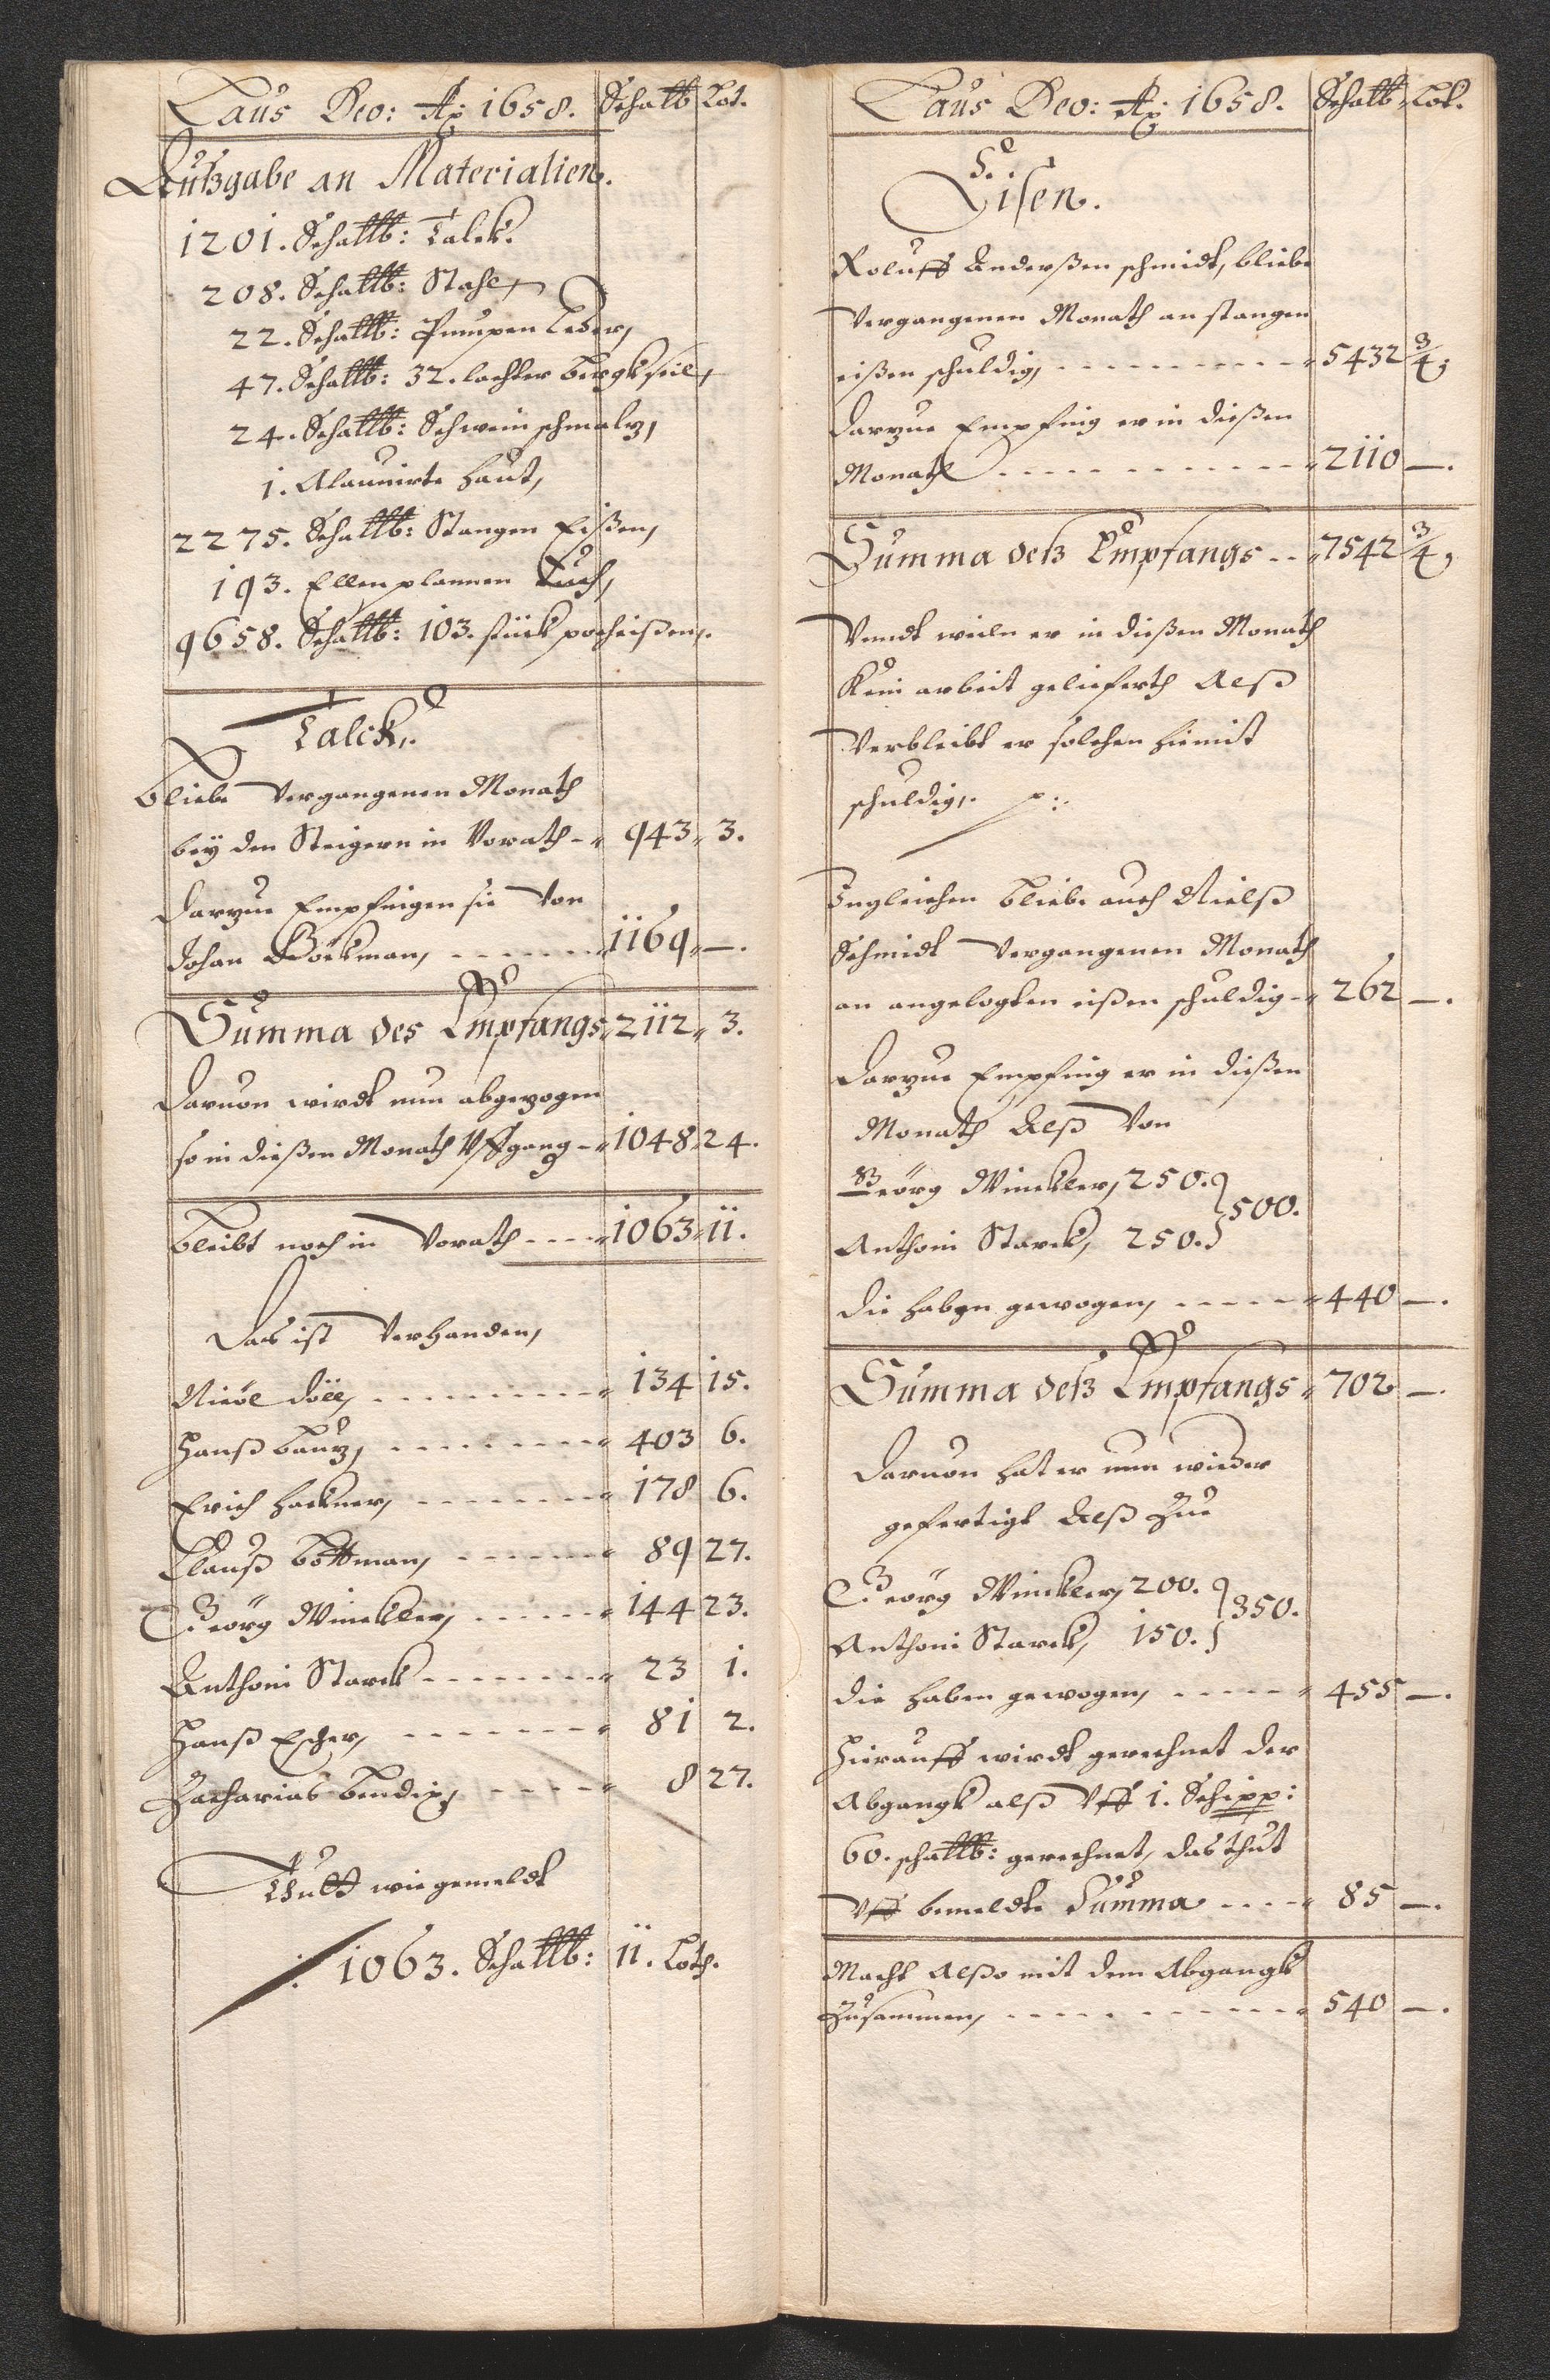 Laus Deo: Aō 1658. Schal℔ Lot.
Außgabe an Materialien.
1201. Schal℔: Talck.
208. Schal℔: Stahl,
22. Schal℔: Pumpen Leder,
47. Schal℔: 32. lachter bergkseil,
24. Schal℔: Schwein schmaltz,
1. Alaunirte haut,
2275. Schal℔: Stangen Eißen,
193. Ellen plannen Tuch,
9658. Schal℔: 103. stück pocheißen,.
Talck,.
Bliebe Vergangenen Monath
bey den Steigern in Vorath - 943 3.
Darzue Empfingen sie Von
Johan Böckman, - - - - - 1169 —.
Summa des Empfangs 2112 3.
Daruon wirdt nun abgezogen
so in dießen Monath Vffgang - 1048 24.
Bleibt noch in Vorath - - - - 1063 11.
Das ist Verhanden,
Nicöl Döll, - - - - - - - - 134 15.
Hanß Bautz, - - - - - - - - 403 6.
Erich Hackner, - - - - - - - 178 6.
Clauß Bottman, - - - - - - 89 27.
Geörg Winckler, - - - - - - 144 23.
Anthoni Starck - - - - - - - 23 1.
Hanß Escher, - - - - - - - 81 2.
Zacharias Bendix, - - - - - 8 27.
Thutt wie gemeldt
1063. Schal℔: 11. Loth.
Laus Deo: Aō 1658. Schal℔ Lot.
Eisen.
Roluff Anderßen schmidt, bliebe
Vergangenen Monath an stangen
eißen schuldig, - - - - - - - - - 5432 3/4
Darzue Empfing er in dießen
Monath - - - - - - - - - - 2110 —.
Summa deß Empfangs - - 7542 3/4
Vnndt weiln er in dießen Monath
Kein arbeit geliefferth Alß
Verbleibt er solchen hiemit
schuldig,.
Ingleichen bliebe auch Nielß
Schmidt Vergangenen Monath
an angelegten eißen schuldig - 262 —.
Darzue Empfing er in dießen
Monath Alß Von
Geörg Winckler, 250. } 500.
Anthoni Starck, 250. }
die haben gewogen, - - - - - 440 —.
Summa deß Empfangs 702 —.
Daruon hat er nun wieder
gefertigt Alß Zue
Geörg Winckler, 200. } 350.
Anthoni Starck, 150. }
die haben gewogen, - - - - - 455 —.
Hierauff wirdt gerechnet der
Abgangk alß Vff 1. Schipp:
60. schal℔: gerechnet, das thut
Vff bemeldte Summa - - - - 85 —.
Macht Alßo mit dem Abgangk
Zusammen, - - - - - - - - - 540 —.